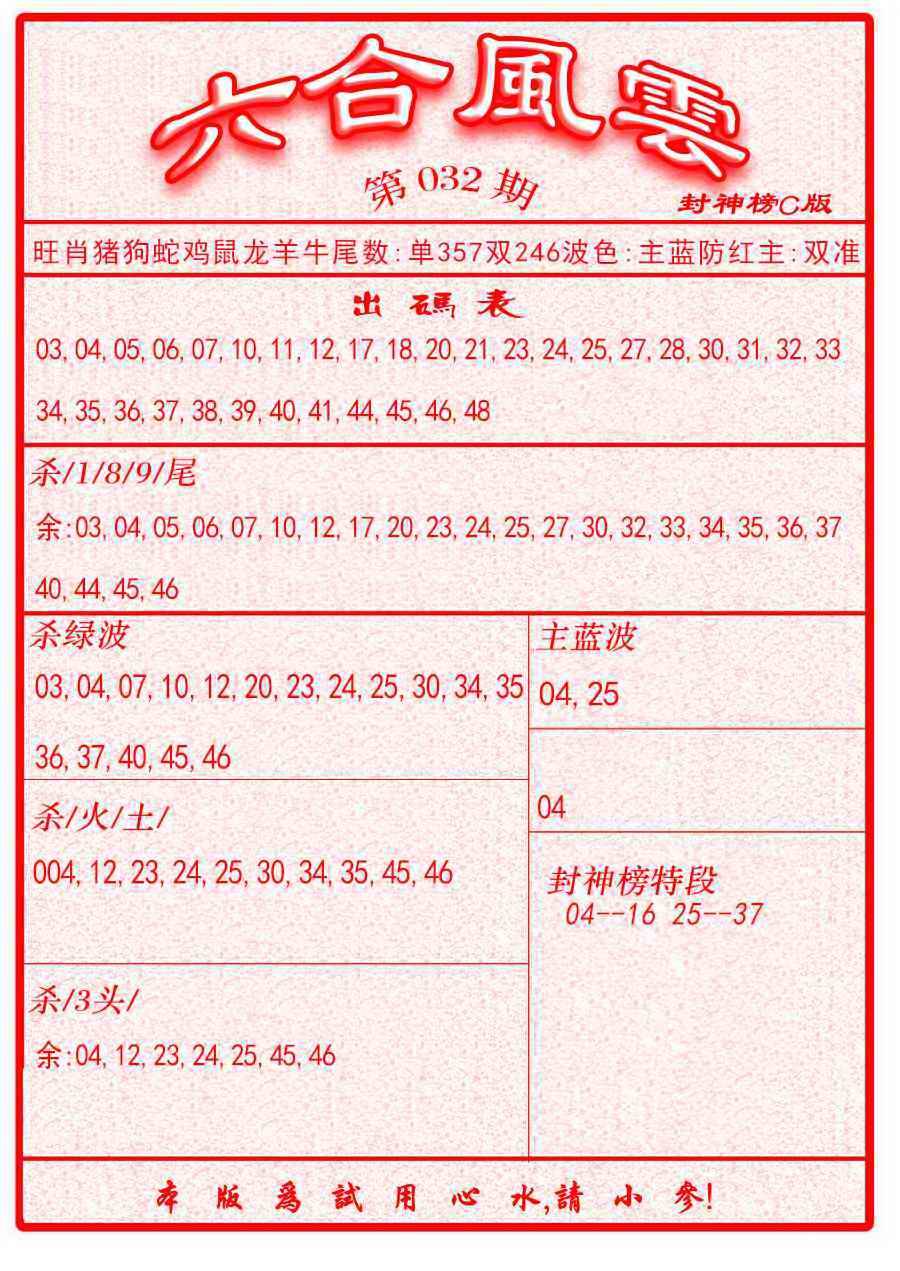 六合風雲
第032期
封神榜C版
旺肖猪狗蛇鸡鼠龙羊牛尾数:单357双246波色:主蓝防红主:双准
出碼表
03,04,05,06,07,10,11,12,17,18,20,21,23,24,25,27,28,30,31,32,33
34,35,36,37,38,39,40,41,44,45,46,48
杀/1/8/9/尾
余:03,04,05,06,07,10,12,17,20,23,24,25,27,30,32,33,34,35,36,37
40,44,45,46
杀绿波
03,04,07,10,12,20,23,24,25,30,34,35
36,37,40,45,46
主蓝波
04,25
04
杀/火/土/
004,12,23,24,25,30,34,35,45,46
封神榜特段
04--16 25--37
杀/3头/
余:04,12,23,24,25,45,46
本版爲試用心水,請小參!